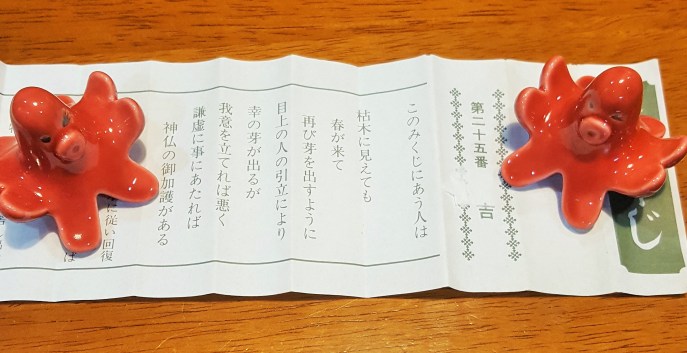 じ
第二十五番 吉
このみくじにあう人は
枯木に見えても
春が来て
再び芽を出すように
目上の人の引立により
幸の芽が出るが
我意を立てれば悪く
謙虚に事にあたれば
神仏の御加護がある
に従い回復
は